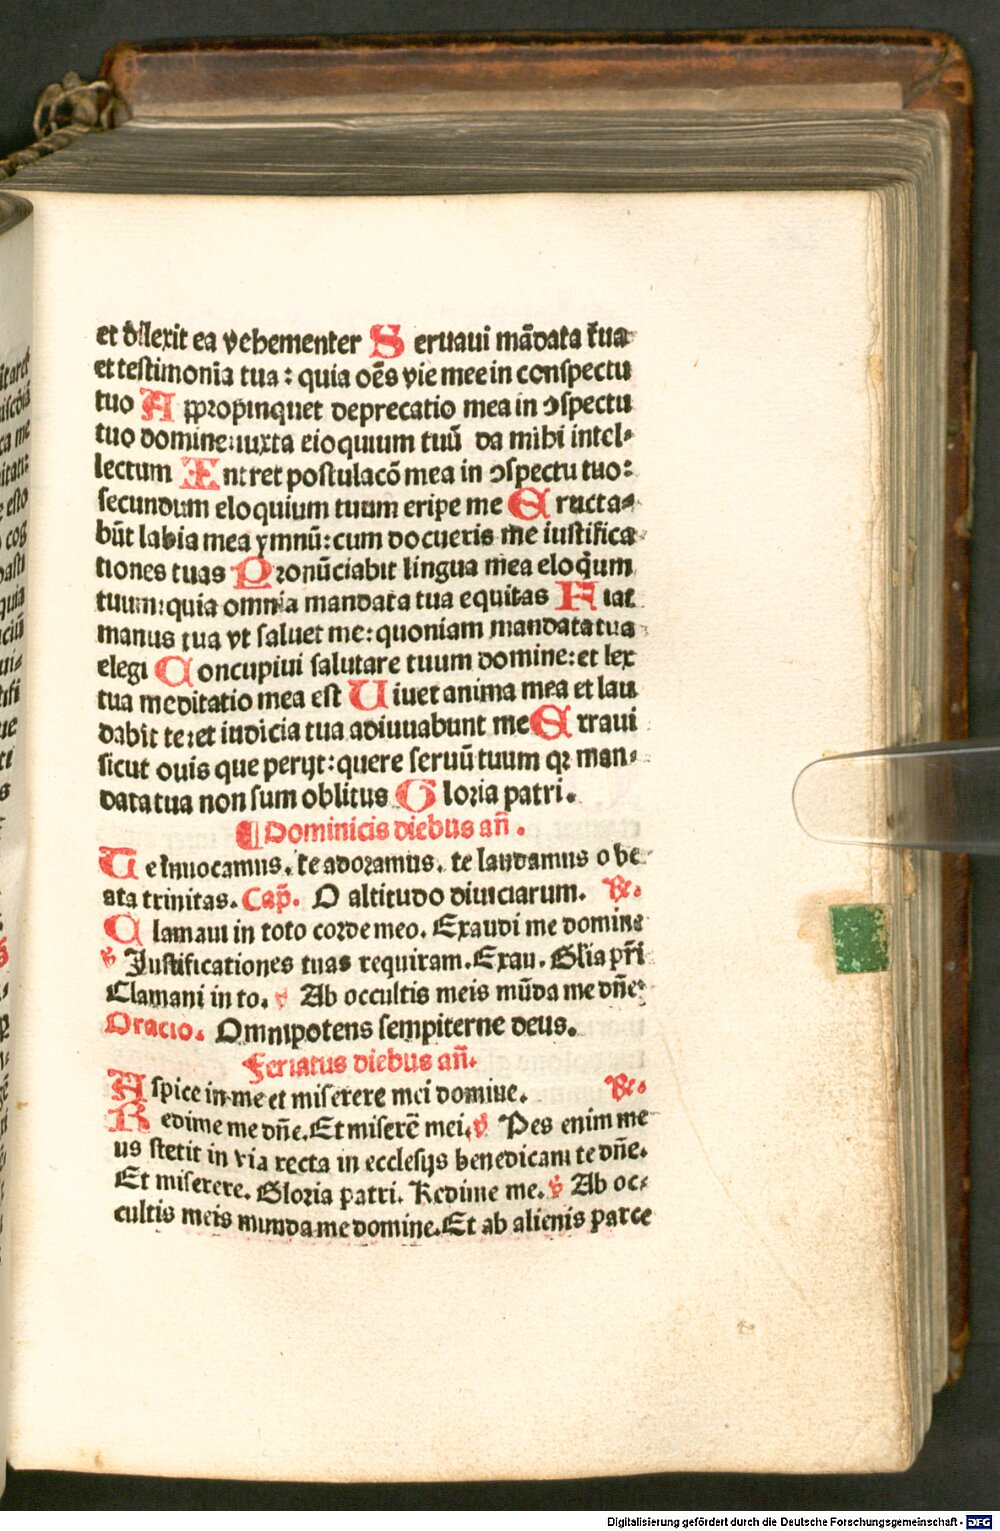 et dilexit ea vehementer Seruaui mādata tua
et testimonia tua : quia oēs vie mee in conspectu
tuo Appropinquet deprecatio mea in ꝯspectu
tuo domine:iuxta eloquium tuū da mihi intel⸗
lectum Intret postulacō mea in ꝯspectu tuo:
secundum eloquium tuum eripe me Eructa⸗
būt labia mea ymnū:cum docueris me iustifica
tiones tuas Pronūciabit lingua mea eloq̄um
tuum:quia omnia mandata tua equitas Fiat
manus tua vt saluet me:quoniam mandata tua
elegi Concupiui salutare tuum domine:et lex
tua meditatio mea est Uiuet anima mea et lau
dabit te:et iudicia tua adiuuabunt me Erraui
sicut ouis que perijt:quere seruū tuum qꝛ man⸗
data tua non sum oblitus Gloria patri.
¶Dominicis diebus añ.
Te inuocamus. te adoramus. te laudamus o be
ata trinitas. Cap̄. O altitudo diuiciarum. ℟.
Clamaui in toto corde meo. Exaudi me domine
℣ Justificationes tuas requiram. Exau. Glia pr̄i
Clamani in to. ℣ Ab occultis meis mūda me dn̄e
Oracio. Omnipotens sempiterne deus.
Feriatus diebus añ.
Aspice in me et miserere mei domine. ℟.
Redime me dn̄e. Et miserē mei. ℣ Pes enim me
us stetit in via recta in ecclesijs benedicam te dn̄e.
Et miserere. Gloria patri. Redime me. ℣ Ab oc⸗
cultis meis munda me domine. Et ab alienis parce
Digitalisierung gefördert durch die Deutsche Forschungsgemeinschaft - DFG